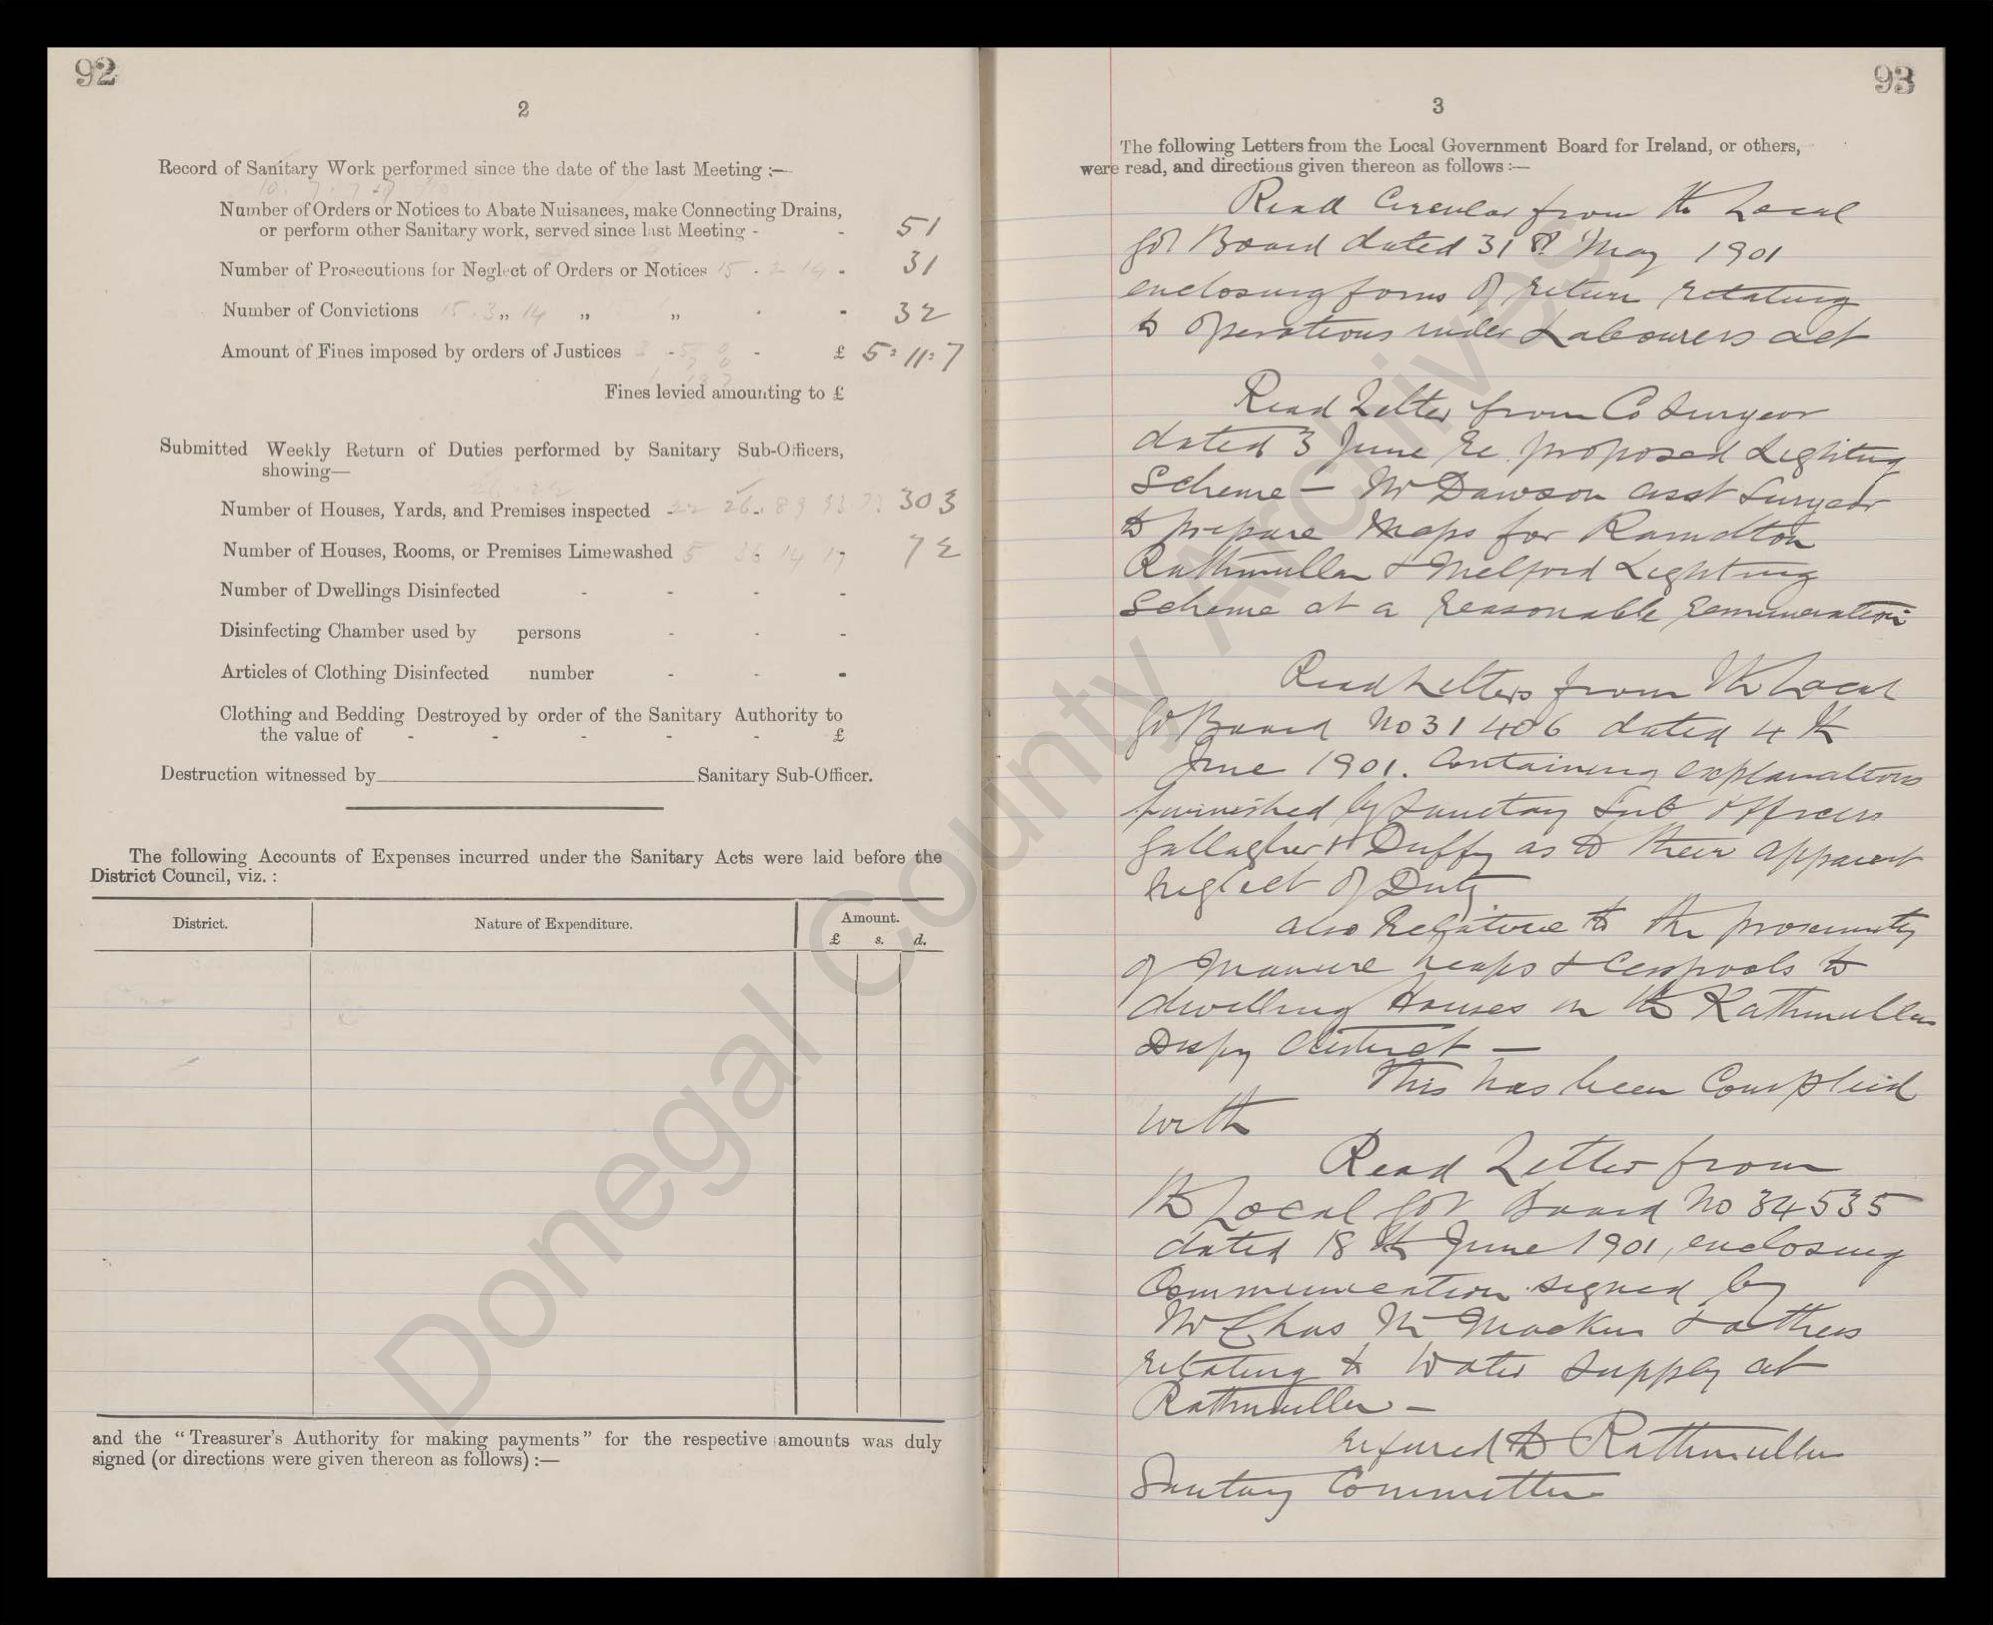 92
2
Record of Sanitary Work performed since the date of the last Meeting :—
Number of Orders or Notices to Abate Nuisances, make Connecting Drains,
or perform other Sanitary work, served since last Meeting - - 51
Number of Prosecutions for Neglect of Orders or Notices - - 31
Number of Convictions „ „ „ - - 32
Amount of Fines imposed by orders of Justices - - £ 5:11:7
Fines levied amounting to £
Submitted Weekly Return of Duties performed by Sanitary Sub-Officers,
showing—
Number of Houses, Yards, and Premises inspected - 303
Number of Houses, Rooms, or Premises Limewashed 72
Number of Dwellings Disinfected - - - -
Disinfecting Chamber used by persons - - -
Articles of Clothing Disinfected number - - -
Clothing and Bedding Destroyed by order of the Sanitary Authority to
the value of - - - - - £
Destruction witnessed by Sanitary Sub-Officer.
The following Accounts of Expenses incurred under the Sanitary Acts were laid before the
District Council, viz. :
District. Nature of Expenditure. Amount.
£ s. d.
and the “Treasurer's Authority for making payments” for the respective amounts was duly
signed (or directions were given thereon as follows) :—
93
3
The following Letters from the Local Government Board for Ireland, or others,
were read, and directions given thereon as follows :—
Read Circular from the Local
Gov Board dated 31st May 1901
enclosing forms of return relating
to operations under Labourers Act
Read Letter from Co Surveyor
dated 3 June re proposed Lighting
Scheme — Mr Dawson asst Surveyor
to prepare Maps for Ramelton
Rathmullan & Milford Lighting
Scheme at a reasonable remuneration
Read Letters from the Local
Gov Board No 31406 dated 4th
June 1901. Containing explanations
furnished by Sanitary Sub officers
Gallagher & Duffy as to their apparent
neglect of Duty
also Relative to the proximity
of Manure heaps & Cesspools to
dwelling Houses in the Rathmullan
Dispy District —
This has been Complied
with
Read Letter from
the Local Gov Board No 34535
dated 18th June 1901, enclosing
Communication signed by
Mr Chas & others
relating to Water Supply at
Rathmullan —
referred to Rathmullan
Sanitary Committee
Donegal County Archives